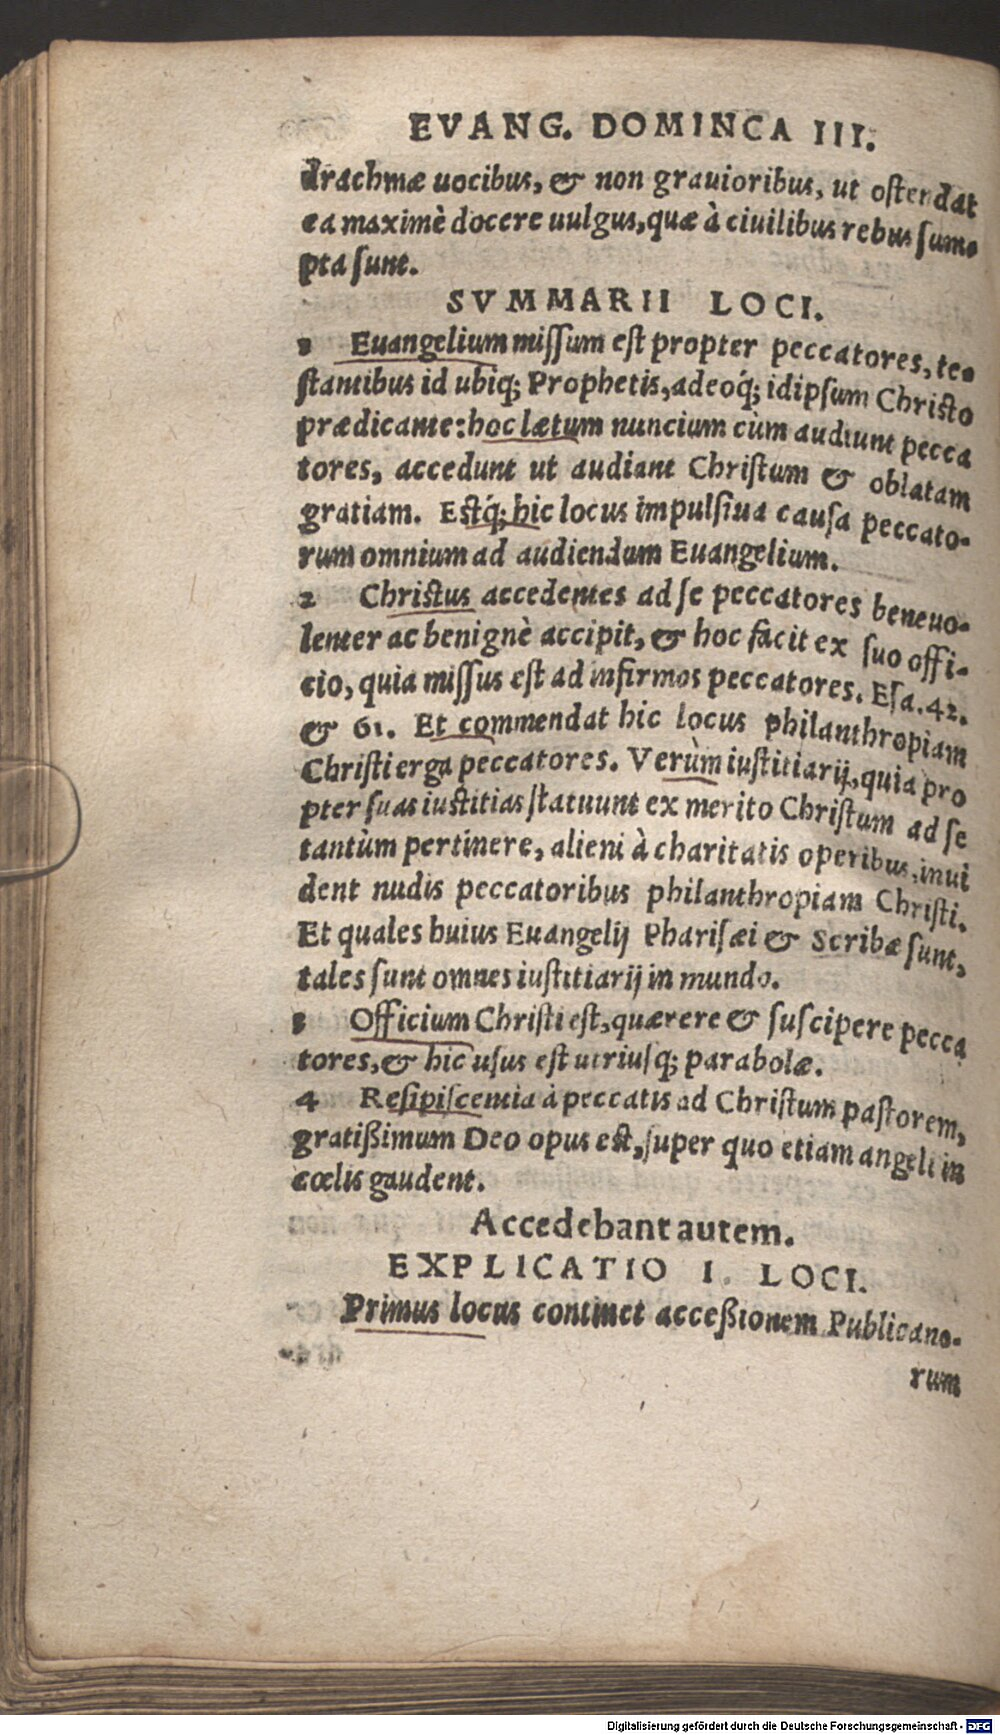 EVANG. DOMINCA III.
drachmæ uocibus, & non grauioribus, ut ostendat
ea maximè docere uulgus, quæ à ciuilibus rebus sum-
pta sunt.
SVMMARII LOCI.
1 Euangelium missum est propter peccatores, te-
stantibus id ubiq; Prophetis, adeoq́; idipsum Christo
prædicante: hoc lætum nuncium cùm audiunt pecca
tores, accedunt ut audiant Christum & oblatam
gratiam. Estq́; hic locus impulsiua causa peccato-
rum omnium ad audiendum Euangelium.
2 Christus accedentes ad se peccatores beneuo-
lenter ac benignè accipit, & hoc facit ex suo offi-
cio, quia missus est ad infirmos peccatores. Esa. 42.
& 61. Et commendat hic locus philanthropiam
Christi erga peccatores. Verùm iustitiarij, quia pro
pter suas iustitias statuunt ex merito Christum ad se
tantùm pertinere, alieni à charitatis operibus, inui
dent nudis peccatoribus philanthropiam Christi.
Et quales huius Euangelij Pharisæi & Scribæ sunt,
tales sunt omnes iustitiarij in mundo.
3 Officium Christi est, quærere & suscipere pecca
tores, & hic usus est utriusq; parabolæ.
4 Resipiscentia à peccatis ad Christum pastorem,
gratißimum Deo opus est, super quo etiam angeli in
cœlis gaudent.
Accedebant autem.
EXPLICATIO I. LOCI.
Primus locus continet acceßionem Publicano-
rum
Digitalisierung gefördert durch die Deutsche Forschungsgemeinschaft - DFG